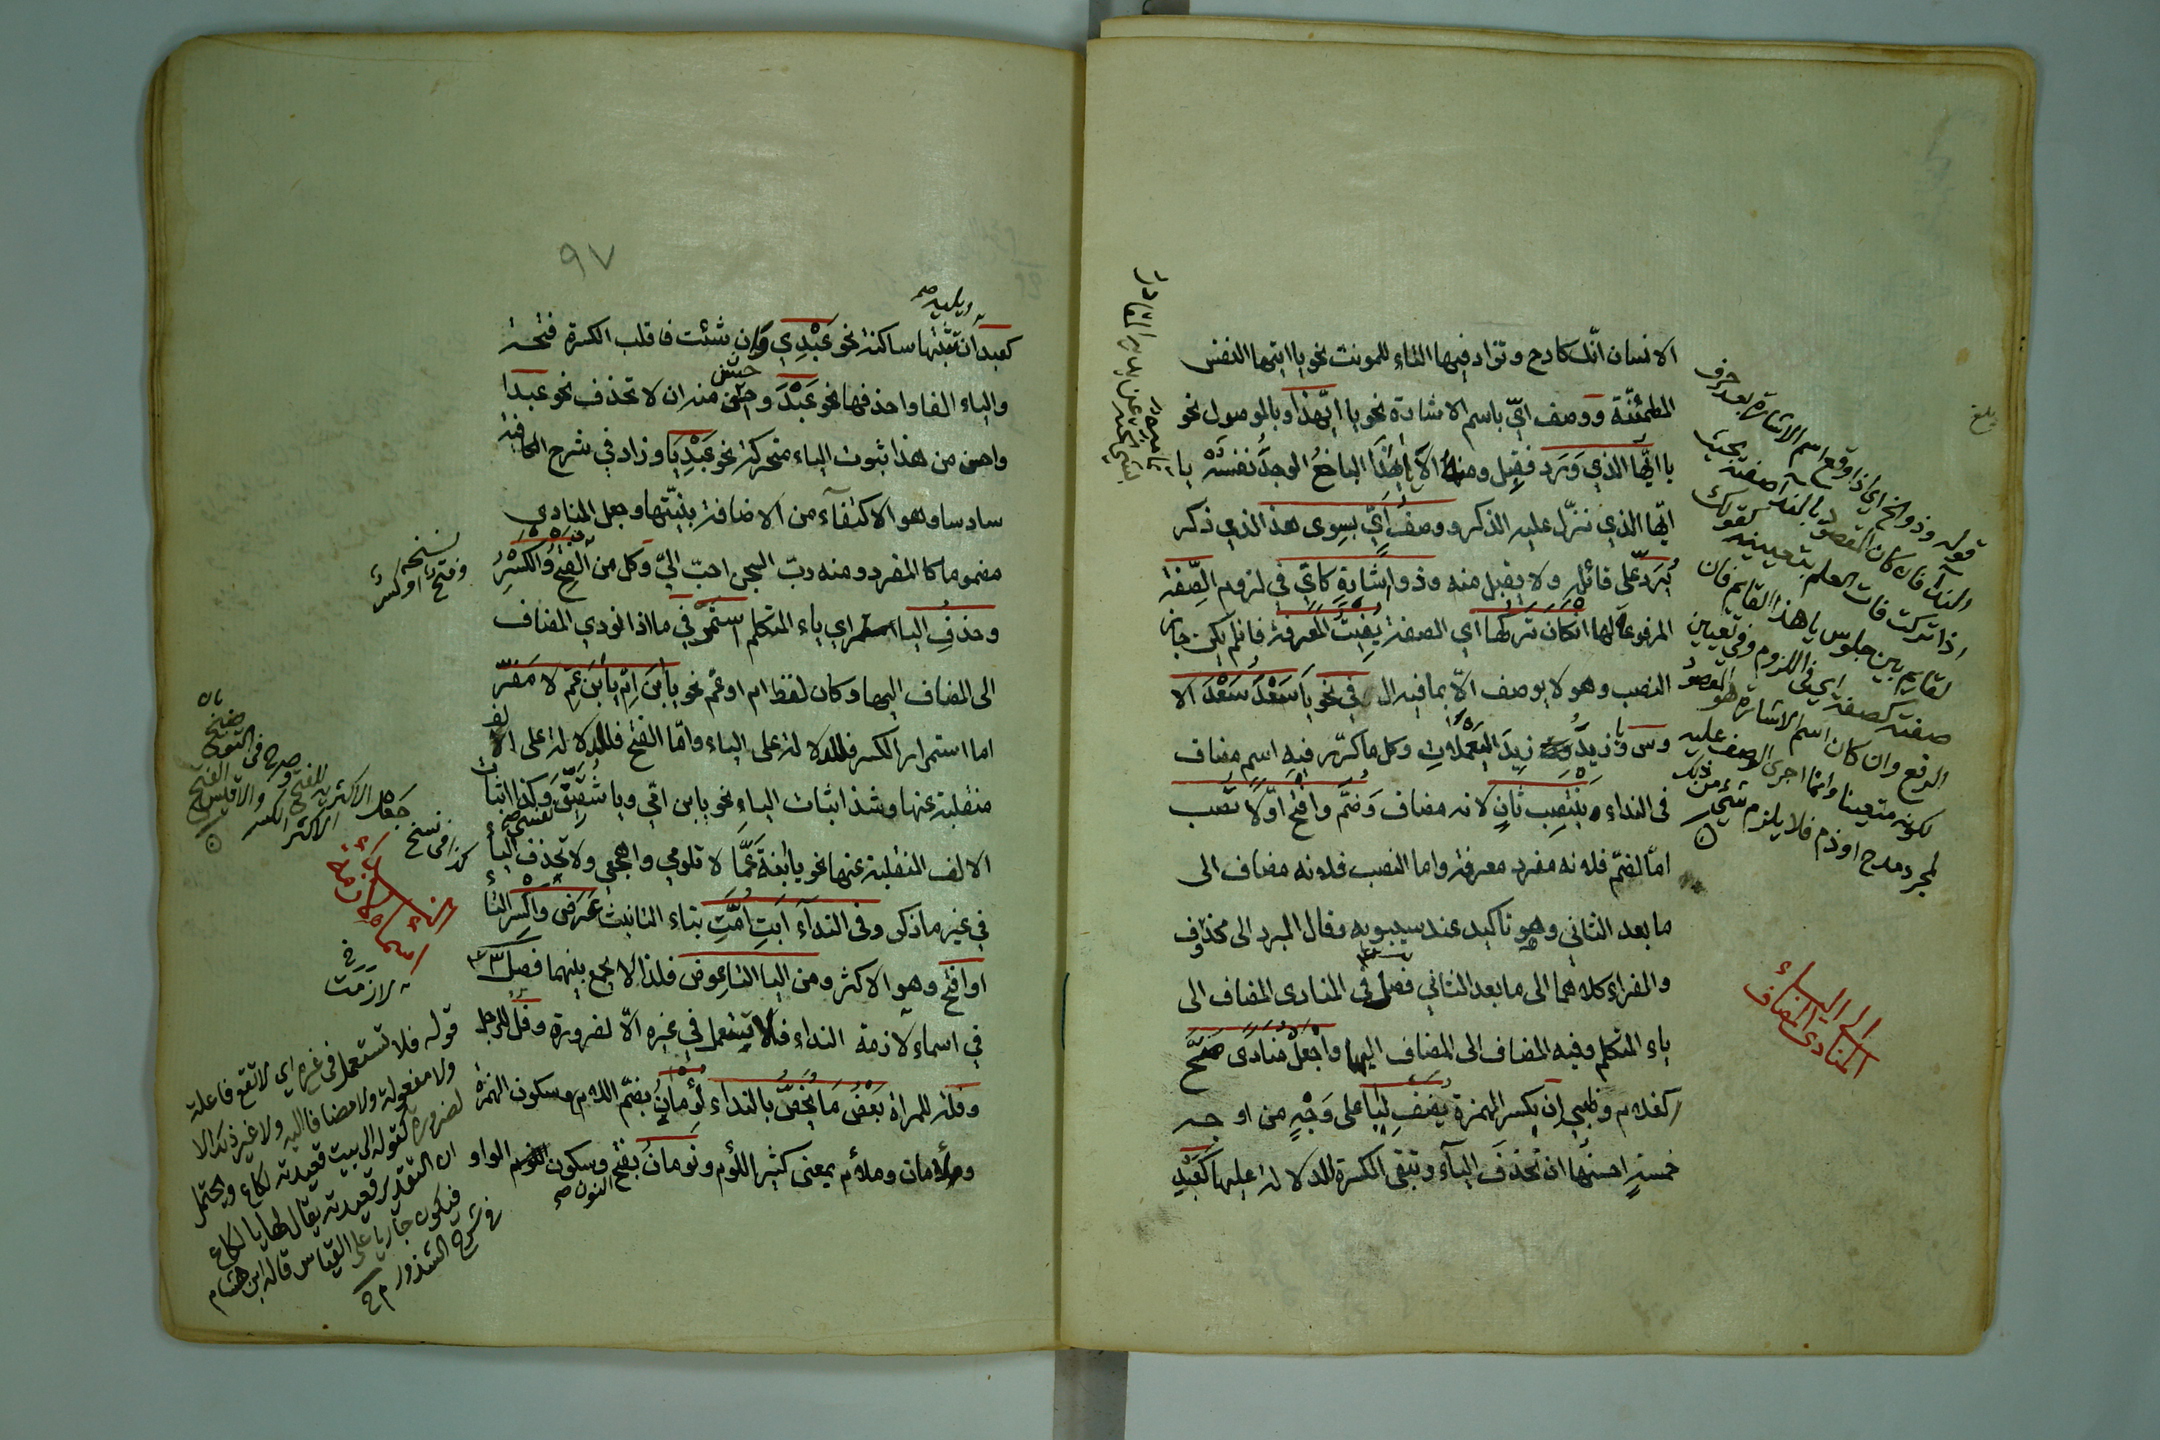 الانسان انّك كادح وتزاد فيها التاء للمونث نحو يا ايتها النفس
المطمئنّة ووصف ايّ باسم الاشارة نحو يا ايّهذا وبالموصول نحو
يا ايّها الذي وَرَد فقِبل ومنه الا ايّهذا الباخعُ الوجدُ نفسَه يا
ايّها الذي نزّل عليه الذكر ووصفُ أيّ بسِوى هذا الذي ذكر
يُرَدّ على قائله ولا يقبل منه وذو اشارةٍ كأيّ في لزوم الصِّفة
المرفوعة لها ان كان تركها اي الصفة يُفيتُ المعرفة فان لم يكن جاز
النصب وهو لا يوصف الاّ بما فيه ال في نحو يا سَعْدُ سَعْدَ الا
وس ويا زيدُ زيدَ اليَعمَلاتِ وكل ما كرّر فيه اسم مضاف
في النداء ينتصب ثانٍ لانه مضاف وَضُمَّ وافتح اوّلا تُصِب
امّا لضمّ فلانه مفرد معرفة واما النصب فلانه مضاف الى
ما بعد الثاني وهو تاكيد عند سيبويه وقال المبرد الى محذوف
والفراء كلاهما الى ما بعد الثاني فصل في المنادى المضاف الى
ياء المتكلم وفيه المضاف الى المضاف اليها واجعل منادًى صَحَّ
كغلام وظبي إن بكسر الهمزة يُضَف لِيا على وَجْهٍ من اوجه
خمسةٍ احسنُها ان تُحذَفَ الياء وتبقى الكسرة للدلالة عليها كعَبْدِ
قوله وذو الخ اي اذا وقع اسم الاشارة بعد حرف
النداء فان كان المقصود بالنداء صفته بحيث
اذا تركت فات العلم بتعيينه كقولك
لقايم بين جلوس يا هذا القايم فان
صفته كصفة اي في اللزوم وفي تعيين
الرفع وان كان اسم الاشارة هو المقصود
لكونه متعينا وانما اجرى الوصف عليه
لمجرد مدح او ذم فلا يلزم شيء من ذلك
المنادى المضاف
الى الياء
بلغ
٩٧
كعبد أن تثبتها ساكنة نحو عَبْدِي وان شئت فاقلب الكسرة فتحة
والياء الفا واحذفها نحو عَبْدَ واحسن منه ان لا تحذف نحو عبدا
واحسن من هذا ثبوت الياء متحركة نحو عَبْدِيَا وزاد في شرح الكافية
سادسا وهو الاكتفاء من الاضافة بنيّتها وجعل المنادى
مضموما كالمفرد ومنه ربّ السجن احب اليّ وكل من الفتح والكسر
وحذفِ اليا استمر اي ياء المتكلم استمرّ في ما اذا نودي المضاف
الى المضاف اليها وكان لفظ ام او عم نحو يا ابنَ امّ يا ابنَ عمّ لا مَفَرّ
اما استمرار الكسر فللدلالة على الياء وامّا الفتح فللدلالة على الالف
منقلبة عنها وشذ اثبات الياء نحو يا بن امّي ويا شُقَيِّقَ وكذا اثبات
الالف المنقلبة عنها نحو يا ابنةَ عمَّا لا تلومي واهجعي ولا تحذف الياء
في غير ما ذكر وفي النداء ابَتِ امَّتِ بتاء التانيث عرض واكسر التاء
او افتح وهو الاكثر ومن اليا التا عِوض فلذا لا يجمع بينهما فصل
في اسماء لازمة النداء فلا تستعمل في غيره الاّ لضرورة وفلُ للرجل
وفلة للمراة بَعْضُ مَا يُخَصُّ بالنداء لُؤْمانُ بضمّ اللام وسكون الهمزة
وملأمان وملأم بمعنى كثير اللؤم ونَومانُ بفتح النون وسكون الواو
نسخه
وفتح او كسر
كذا في نسخ
اسماء لازمة النداء
قوله فلا تستعمل في غيره اي لا تقع فاعلة
ولا مفعولة ولا مضافا اليه ولا غير ذلك الا
لضرورة كقوله الى بيت قعيدته لكاع ويحتمل
ان التقدير قعيدته يقال لها يا لكاع
فيكون جاريا على القياس قاله ابن هشام
في شرح الشذور